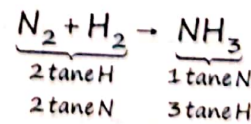 N₂ + H₂ → NH₃
2 tane H 1 tane N
2 tane N 3 tane H